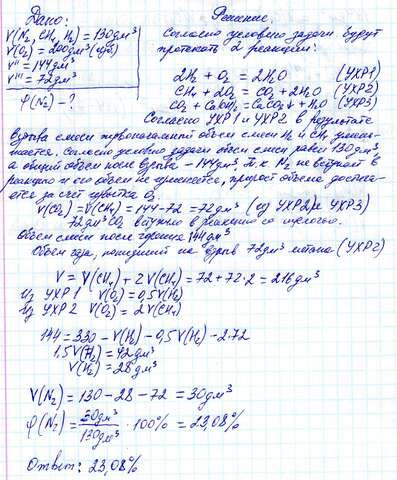 Дано:
Решение:
V(N₂, CH₄, H₂) = 130дм³
V(O₂) = 200дм³ (изб)
V'' = 144дм³
V''' = 72дм³
φ(N₂) - ?
Согласно условию задачи будут
протекать 2 реакции:
2H₂ + O₂ = 2H₂O (УХР1)
CH₄ + 2O₂ = CO₂ + 2H₂O (УХР2)
CO₂ + Ca(OH)₂ = CaCO₃↓ + H₂O (УХР3)
Согласно УХР1 и УХР2 в результате
взрыва смеси первоначальный объем смеси H₂ и CH₄
Согласно условию задачи объем смеси равен 130дм³,
а общий объем после взрыва - 144дм³. Т.к N₂ не вступает в
реакцию и его объем не изменяется, прирост объема
за счет избытка O₂
V(CO₂) = V(CH₄) = 144-72 = 72дм³ (из УХР2 и УХР3)
72дм³ CO₂ вступило в реакцию со щелочью.
Объем смеси после 144дм³
Объем газа, пошедший на взрыв 72дм³ метана (УХР2)
V = V(CH₄) + 2V(CH₄) = 72 + 72·2 = 216дм³
Из УХР1 V(O₂) = 0,5V(H₂)
Из УХР2 V(O₂) = 2V(CH₄)
144 = 330 - V(H₂) - 0,5V(H₂) - 2·72
1,5V(H₂) = 42дм³
V(H₂) = 28дм³
V(N₂) = 130 - 28 - 72 = 30дм³
φ(N₂) = 30дм³/130дм³ · 100% = 23,08%
Ответ: 23,08%